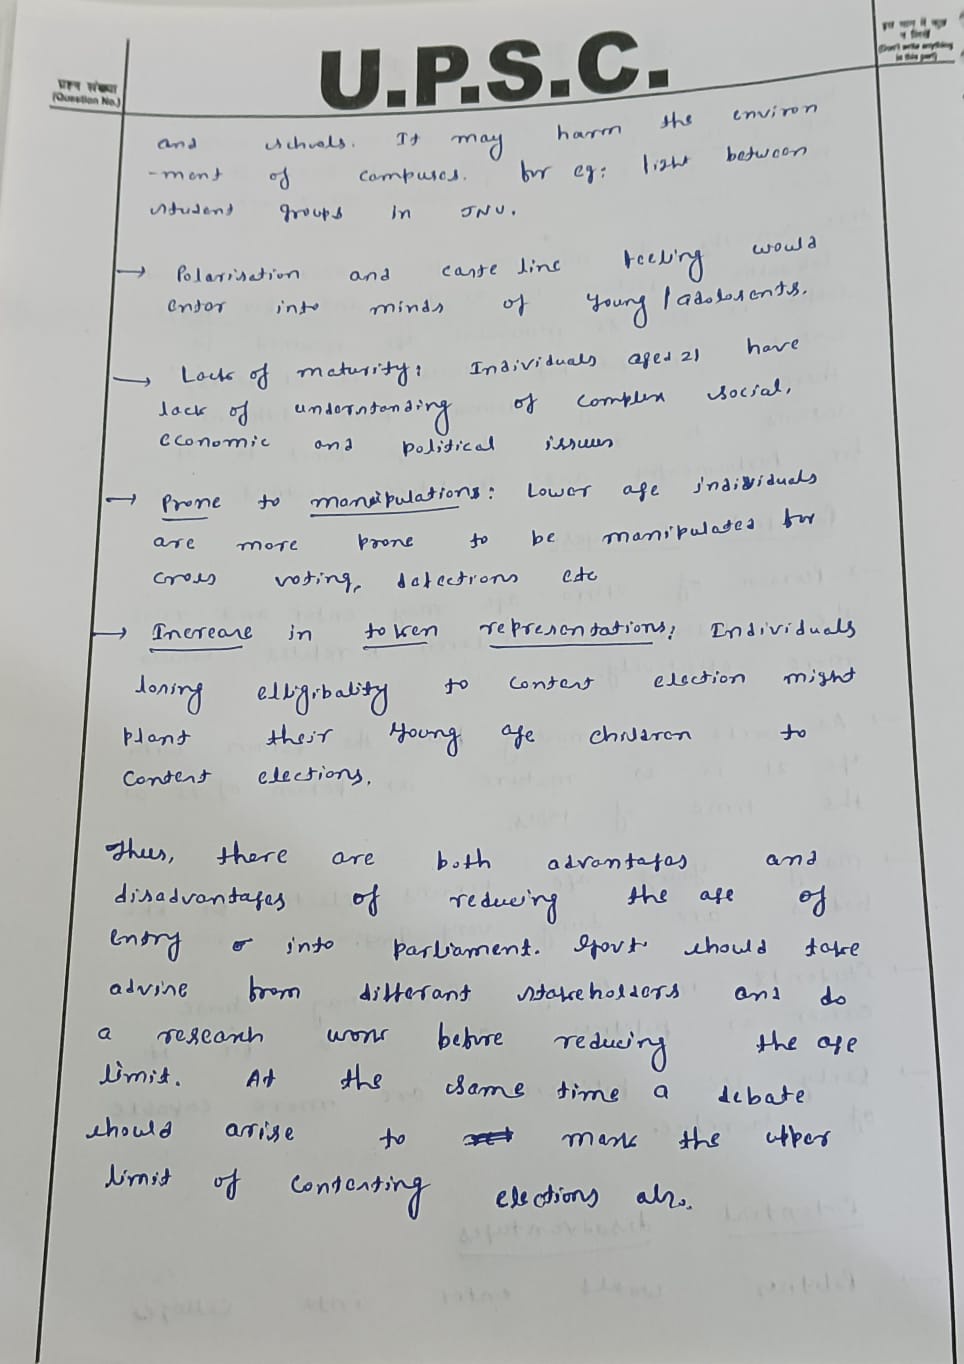 U.P.S.C.
प्रश्न संख्या
(Question No.)
(Don't write anything
in this part)
and schools. It may harm the environ
-ment of campuses. for eg: fight between
student groups in JNU.
→ Polarisation and caste line feeling would
enter into minds of young / adolosents.
→ Lack of maturity: Individuals aged 21 have
lack of understanding of complex social,
economic and political issues
→ Prone to manipulations: Lower age individuals
are more prone to be manipulated for
cross voting, defections etc
→ Increase in token representations: Individuals
losing elligibality to contest election might
plant their young age children to
contest elections.
Thus, there are both advantages and
disadvantages of reducing the age of
entry into parliament. Govt should take
advise from different stakeholders and do
a research work before reducing the age
limit. At the same time a debate
should arise to mark the upper
limit of contesting elections also.